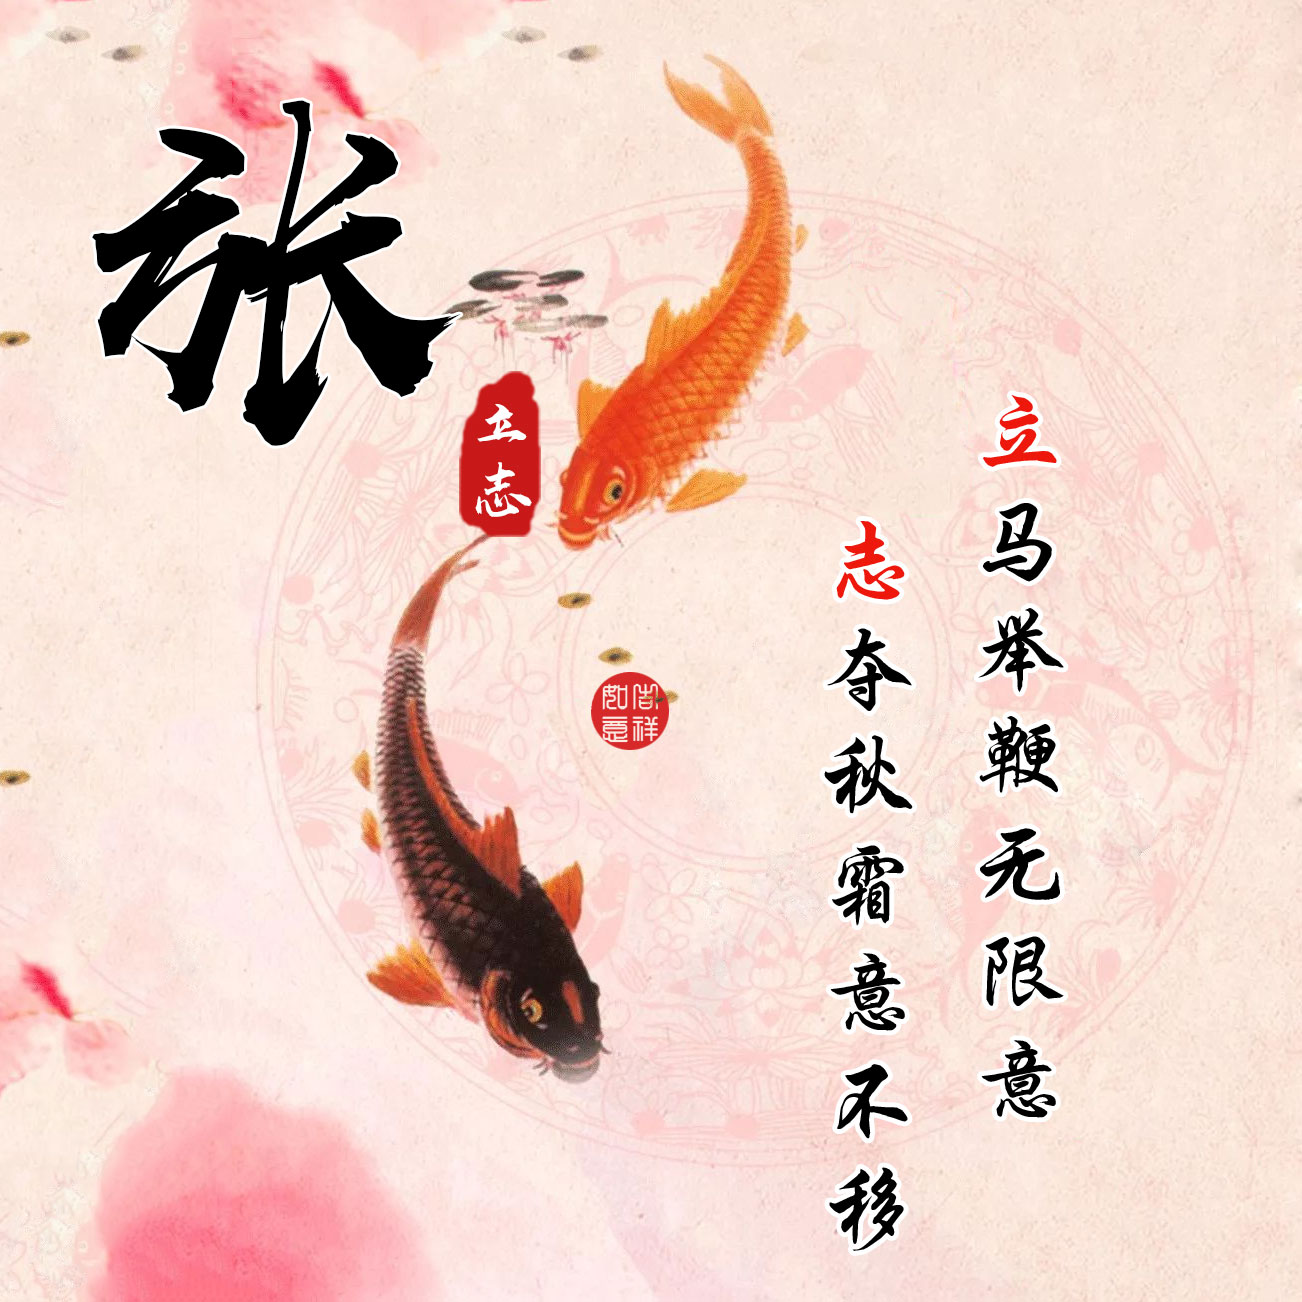 张
立志
立马举鞭无限意
志夺秋霜意不移
吉祥
如意